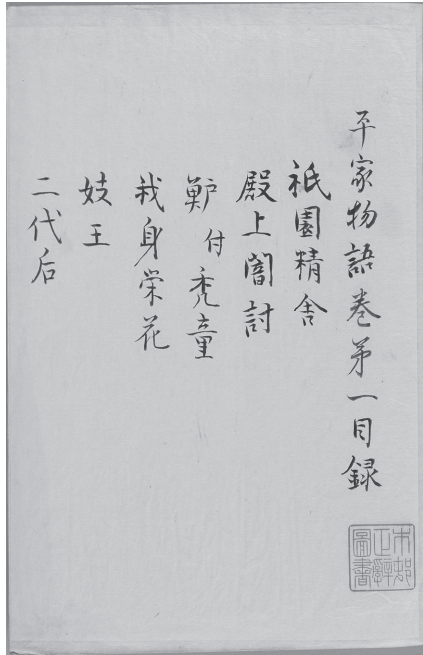 平家物語巻第一目録
祇園精舎
殿上闇討
鱸付禿童
我身栄花
妓王
二代后
市邨
正辭
圖書